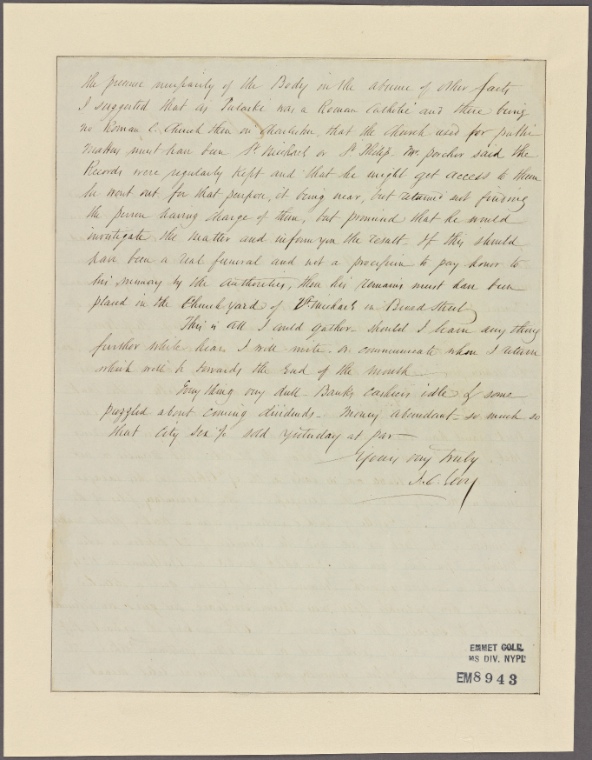 the presence necessarily of the Body in the absence of other facts
I suggested that as Pulaski was a Roman Catholic and there being
no Roman C. Church then in Charleston, that the Church used for public
must have been St Michaels or St Philip. Mr porcher said the
Records were regularly kept and that he might get access to them
he went out for that purpose, it being near, but returned not finding
the person having charge of them, but promised that he would
investigate the matter and inform you the result. If this should
have been a real funeral and not a procession to pay honor to
his memory by the authorities, then his remains must have been
placed in the Church yard of St Michaels in Broad Street
This is all I could gather. Should I learn any thing
further while here I will write or communicate when I return
which will be towards the End of the month
Every thing very dull. Banks cashiers idle & some
puzzled about coming dividends. Money abundant - so much so
that City six % sold yesterday at par
Yours very truly
J. C. Levy
EMMET COLL.
MS DIV. NYPL
EM8943